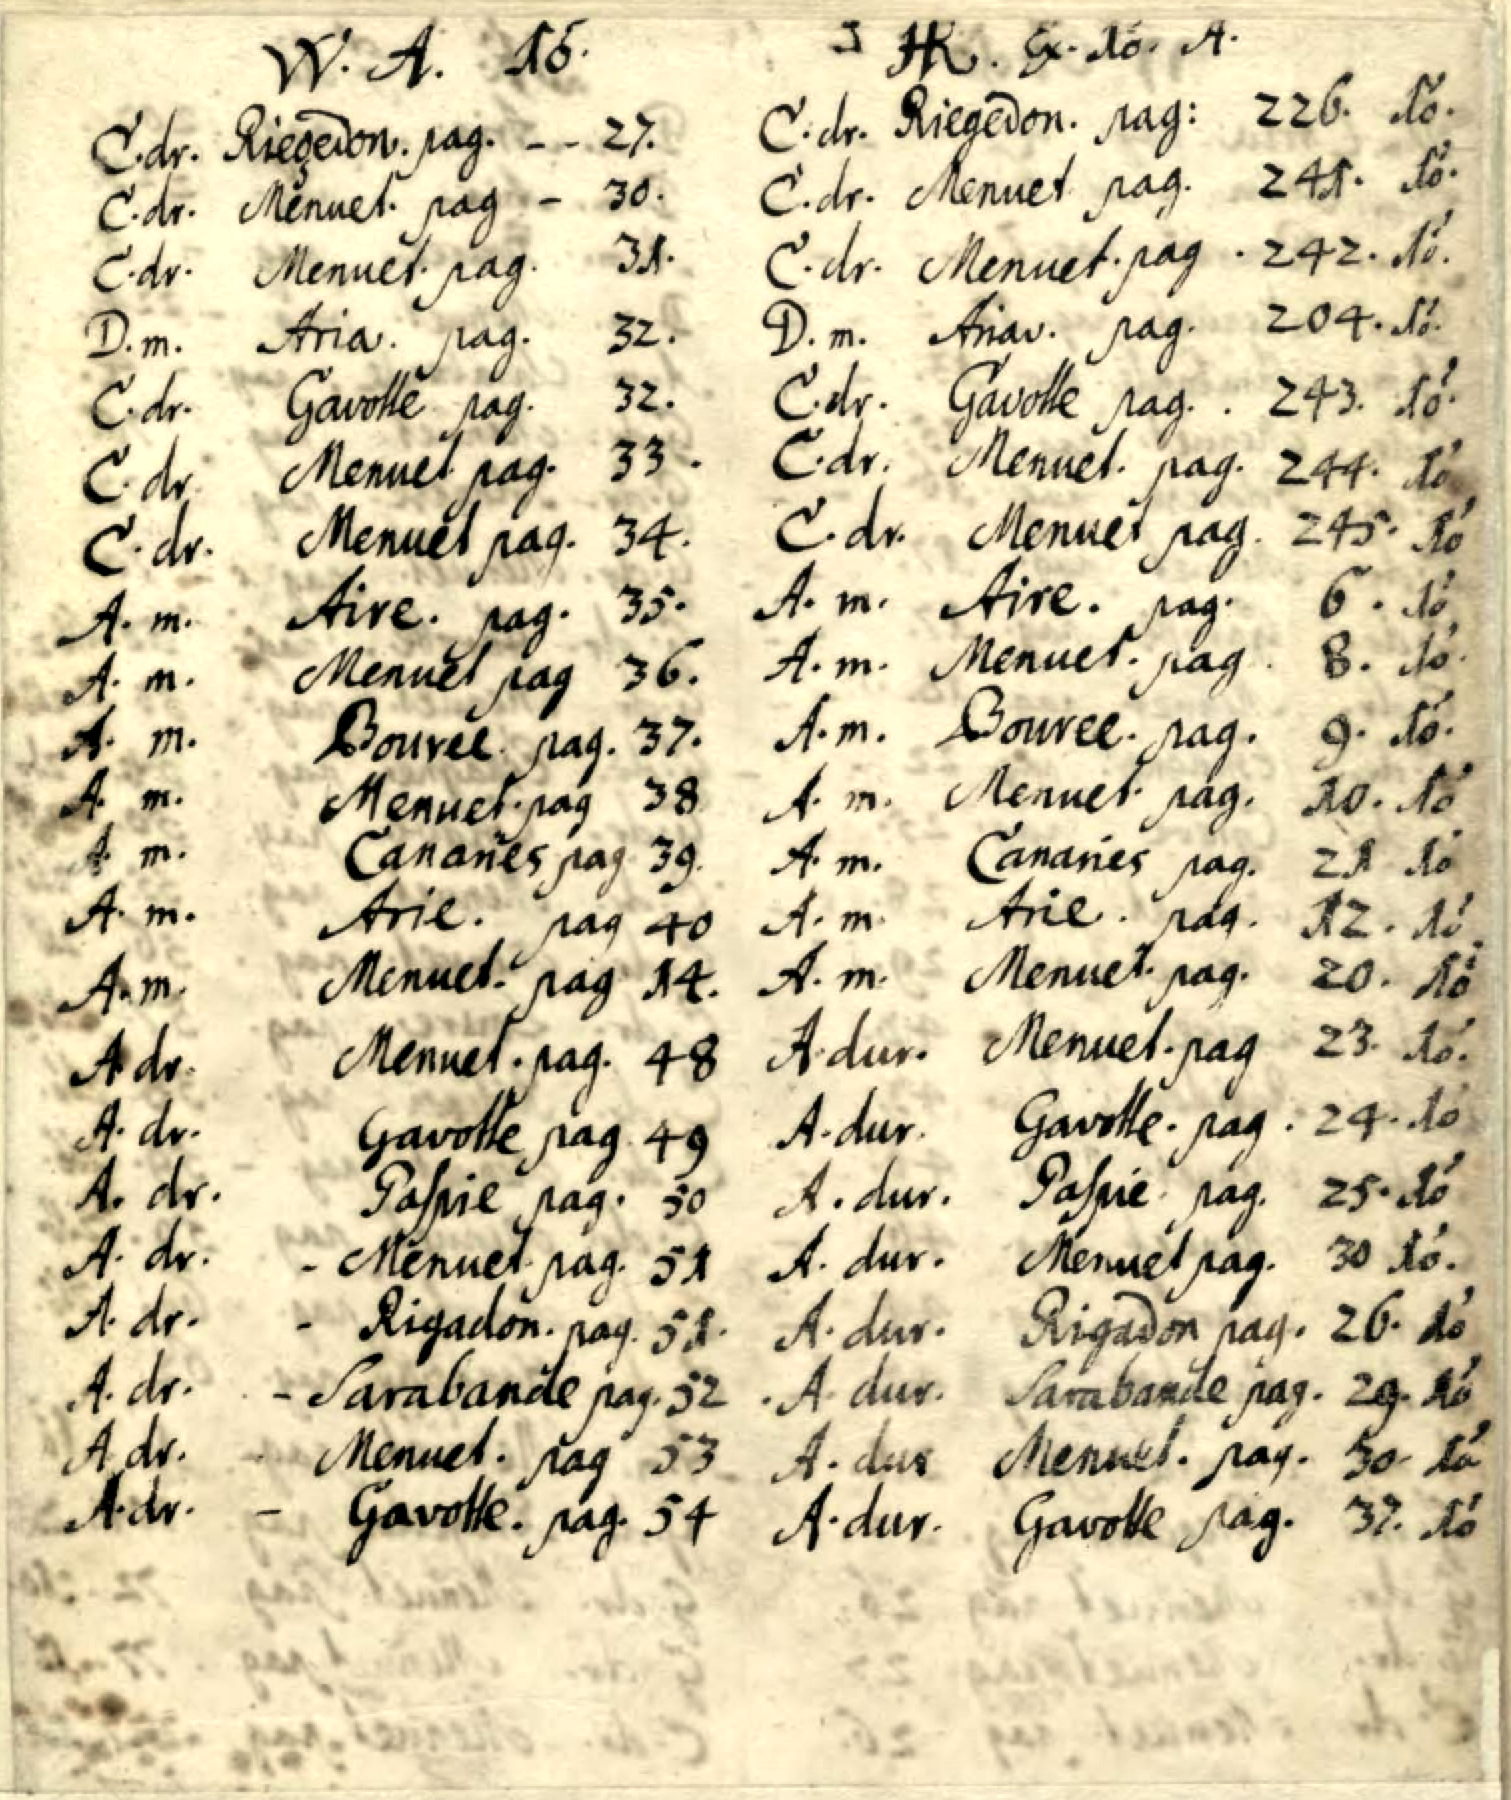 W. A. 16. HK. Ex. 10. A.
C. dr. Riegedon. pag. - - 27. C. dr. Riegedon. pag: 226. 10.
C. dr. Menuet. pag - 30. C. dr. Menuet pag. 241. 10.
C. dr. Menuet. pag. 31. C. dr. Menuet. pag. 242. 10.
D. m. Aria. pag. 32. D. m. Aria. pag. 204. 10.
C. dr. Gavotte pag. 32. C. dr. Gavotte pag. . 243. 10.
C. dr. Menuet pag. 33. C. dr. Menuet. pag. 244. 10
C. dr. Menuet pag. 34. C. dr. Menuet pag. 245. 10
A. m. Aire. pag. 35. A. m. Aire. pag. 6. 10
A. m. Menuet pag 36. A. m. Menuet. pag. 8. 10.
A. m. Bouree. pag. 37. A. m. Bouree. pag. 9. 10.
A. m. Menuet. pag 38 A. m. Menuet. pag. 10. 10
A. m. Canaries pag 39. A. m. Canaries pag. 21 10
A. m. Arie. pag 40 A. m. Arie. pag. 12. 10.
A. m. Menuet. pag 14. A. m. Menuet. pag. 20. 10
A dr. Menuet. pag. 48 A. dur. Menuet. pag 23. 10.
A. dr. Gavotte pag 49 A. dur. Gavotte. pag. 24. 10
A. dr. Paſpie pag. 50 A. dur. Paſpie. pag. 25. 10
A. dr. - Menuet. pag. 51 A. dur. Menuet pag. 30 10.
A. dr. - Rigadon. pag. 51. A. dur. Rigadon pag. 26. 10
A. dr. - Sarabande pag. 52 A. dur. Sarabande pag. 29. 10
A dr. - Menuet. pag 53 A. dur Menuet. pag. 30. 10
A. dr. - Gavotte. pag. 54 A. dur. Gavotte pag. 37. 10